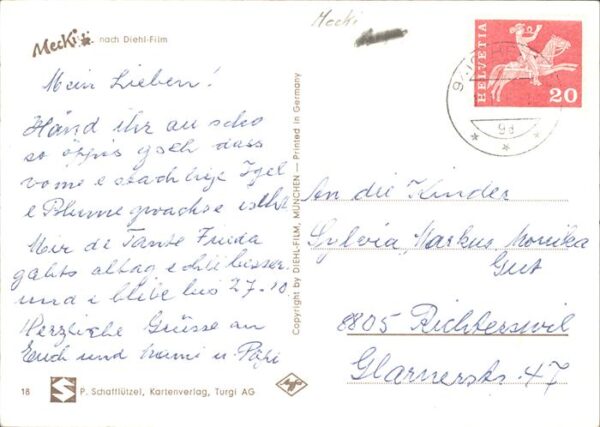 Mecki nach Diehl-Film
Mecki
HELVETIA
20
Mein Lieben!
Händ ihr au scho
so öppis gseh dass
vome stachlige Igel
e Blume gwachse isch?
Mir de Tante Frieda
gahts alltag echli besser.
und i blibe bis 27.10
Herzliche Grüsse an
Euch und Mami u. Papi
Copyright by DIEHL-FILM, MÜNCHEN — Printed in Germany
An die Kinder
Sylvia, Markus, Monika
Gut
8805 Richterswil
Glarnerstr. 47
18 P. Schafflützel, Kartenverlag, Turgi AG